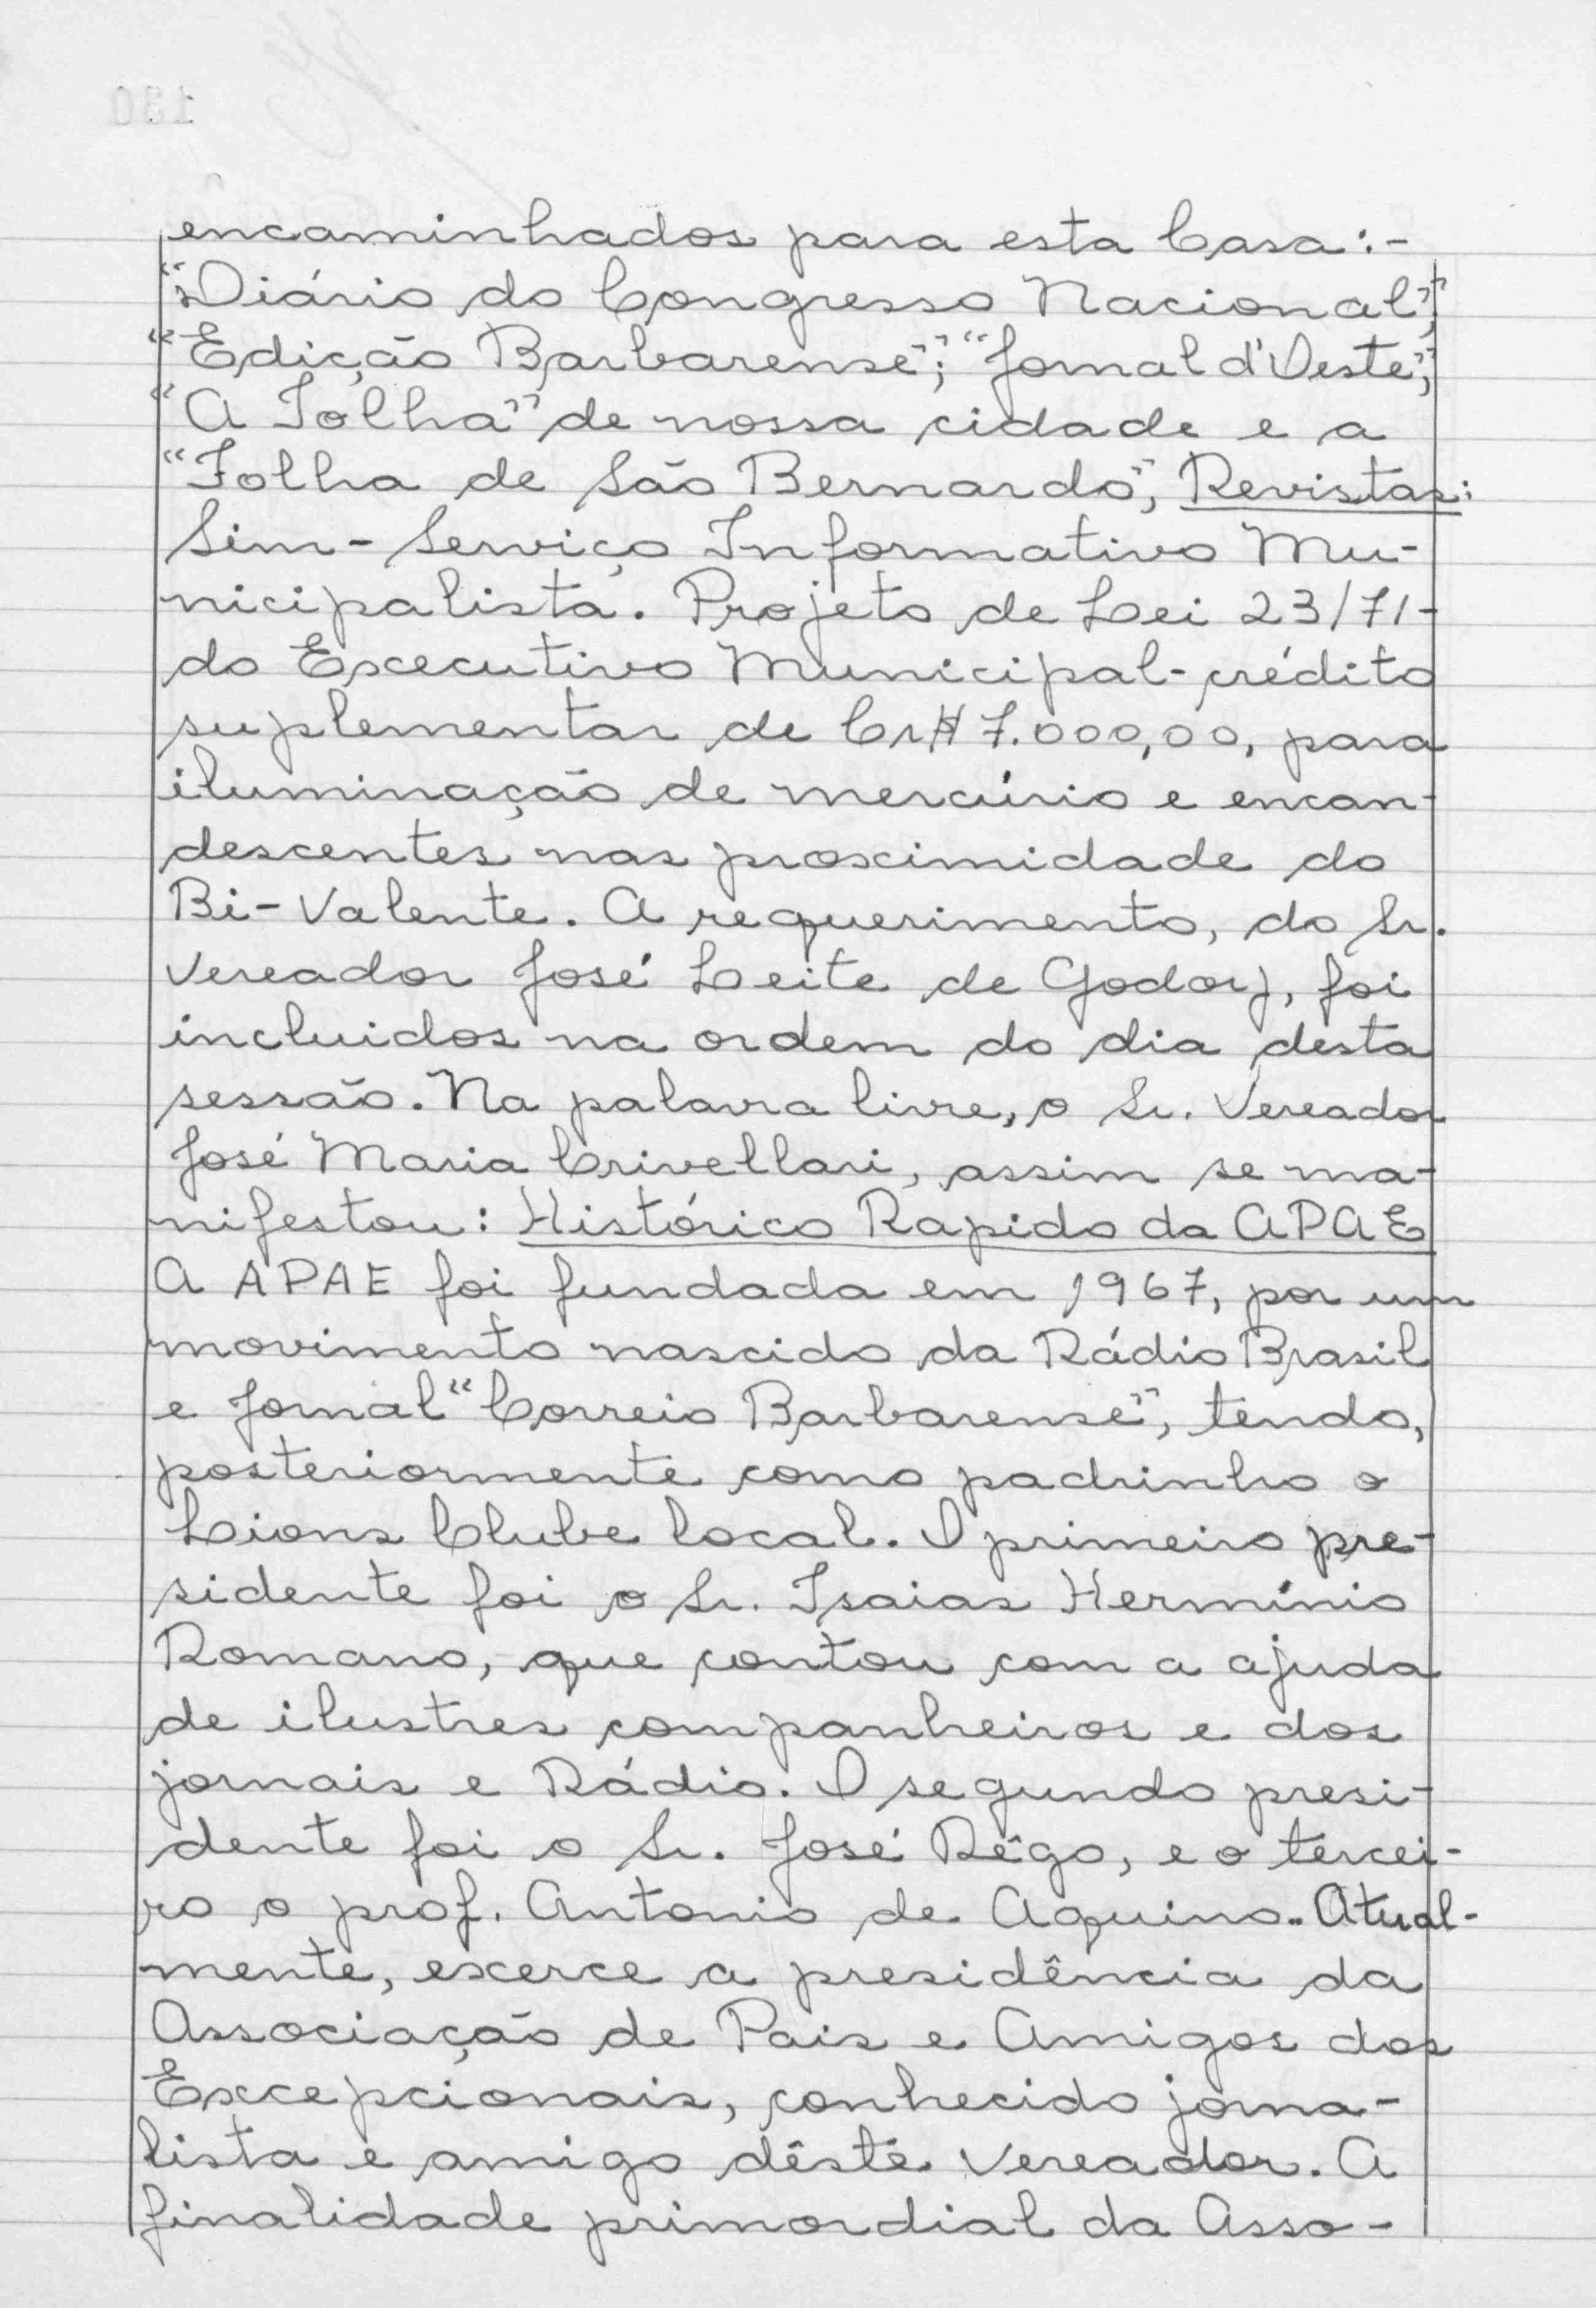 encaminhados para esta Casa:-
"Diário do Congresso Nacional";
"Edição Barbarense"; "Jornal d'Oeste";
"A Folha" de nossa cidade e a
"Folha de São Bernardo", Revistas:
Sim - Serviço Informativo Mu-
nicipalista. Projeto de Lei 23/71-
do Executivo Municipal - crédito
suplementar de Cr$ 7.000,00, para
iluminação de mercúrio e encan-
descentes nas proximidade do
Bi-Valente. A requerimento, do Sr.
Vereador José Leite de Godoy, foi
incluidos na ordem do dia desta
sessão. Na palavra livre, o Sr. Vereador
José Maria Crivellari, assim se ma-
nifestou: Histórico Rapido da APAE
A APAE foi fundada em 1967, por um
movimento nascido da Rádio Brasil
e Jornal "Correio Barbarense", tendo,
posteriormente como padrinho o
Lions Clube local. O primeiro pre-
sidente foi o Sr. Isaias Hermínio
Romano, que contou com a ajuda
de ilustres companheiros e dos
jornais e Rádio. O segundo presi-
dente foi o Sr. José Rêgo, e o tercei-
ro o prof. Antonio de Aquino.. Atual-
mente, exerce a presidência da
Associação de Pais e Amigos dos
Excepcionais, conhecido jorna-
lista e amigo dêste Vereador. A
finalidade primordial da Asso-